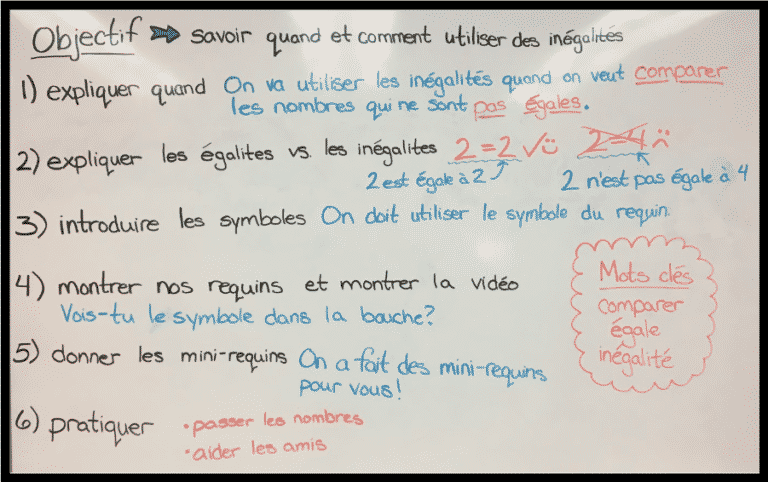 Objectif ➳ savoir quand et comment utiliser des inégalités
1) expliquer quand On va utiliser les inégalités quand on veut comparer
les nombres qui ne sont pas égales.
2) expliquer les égalites vs. les inégalites 2=2 ✓ 2=4
2 est égale à 2 2 n'est pas égale à 4
3) introduire les symboles On doit utiliser le symbole du requin.
4) montrer nos requins et montrer la vidéo
Vois-tu le symbole dans la bouche?
5) donner les mini-requins On a fait des mini-requins
pour vous!
6) pratiquer
• passer les nombres
• aider les amis
Mots clés
comparer
égale
inégalité